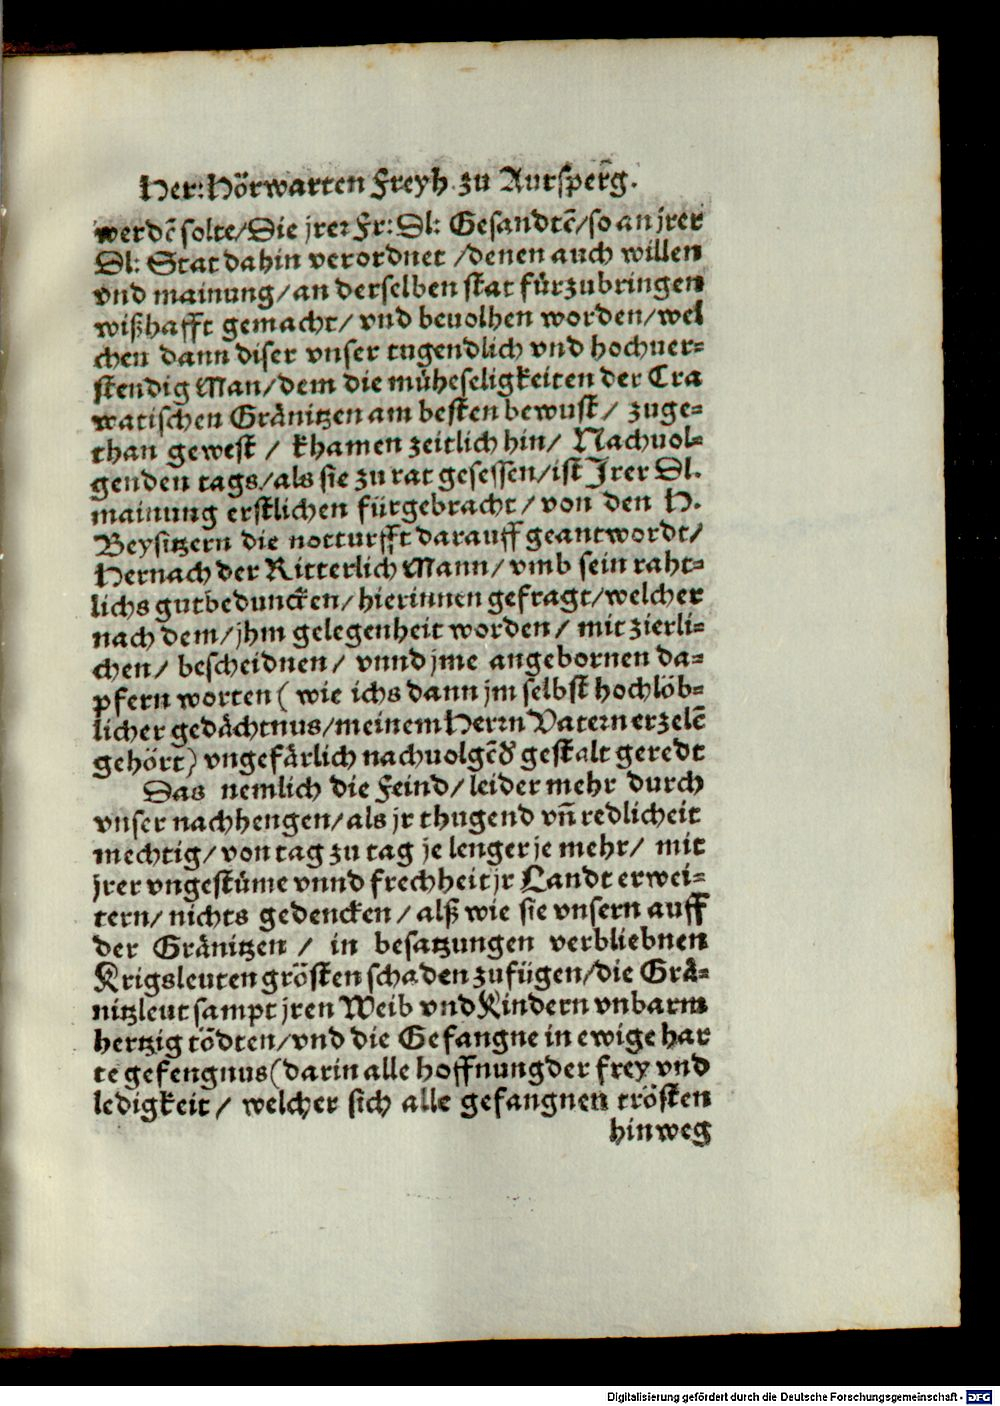 Her: Hörwarten Freyh. zu Aursperg̃.
werdẽ solte/Die jrer Fr: Dl: Gesandtẽ/so an jrer
Dl: Stat dahin verordnet /denen auch willen
vnd mainung/an derselben stat fürzubringen
wißhafft gemacht/ vnd beuolhen worden/wel
chen dann diser vnser tugendlich vnd hochuer-
stendig Man/dem die müheseligkeiten der Cra
watischen Gränitzen am besten bewust/ zuge-
than gewest / khamen zeitlich hin/ Nachuol-
genden tags/als sie zu rat gesessen/ist Jrer Dl.
mainung erstlichen fürgebracht/ von den H.
Beysitzern die notturfft darauff geantwordt/
Hernach der Ritterlich Mann/ vmb sein raht-
lichs gutbeduncken/hierinnen gefragt/welcher
nach dem/jhm gelegenheit worden/ mit zierli-
chen/ bescheidnen/ vnnd jme angebornen da-
pfern worten( wie ichs dann jm selbst hochlöb-
licher gedächtnus/meinem Herrn Vatern erzelẽ
gehört) vngefärlich nachuolgẽd gestalt geredt
Das nemlich die Feind/leider mehr durch
vnser nachhengen/als jr thugend vñ redlicheit
mechtig/von tag zu tag je lenger je mehr/ mit
jrer vngestüme vnnd frechheit jr Landt erwei-
tern/ nichts gedencken/alß wie sie vnsern auff
der Gränitzen / in besatzungen verbliebnen
Krigsleuten grösten schaden zufügen/die Grä-
nitzleut sampt jren Weib vnd Kindern vnbarm
hertzig tödten/vnd die Gefangne in ewige har
te gefengnus(darin alle hoffnung der frey vnd
ledigkeit/ welcher sich alle gefangnen trösten
hinweg
Digitalisierung gefördert durch die Deutsche Forschungsgemeinschaft - DFG